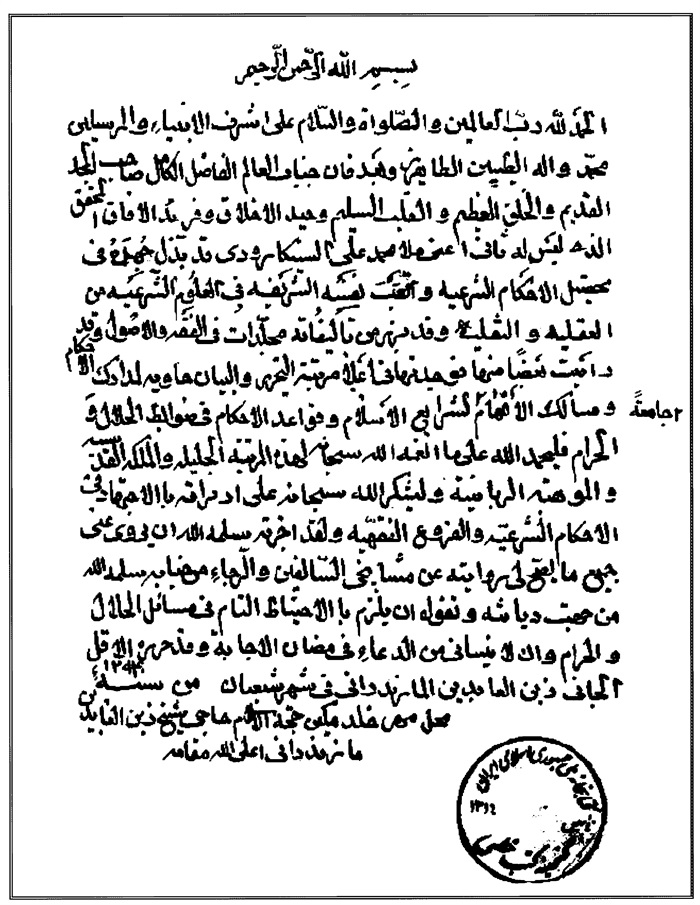 بسم الله الرحمن الرحیم
الحمد لله رب العالمین و الصلوة و السلام علی اشرف الانبیاء و المرسلین
محمد و اله الطیبین الطاهرین و بعد فان جناب العالم الفاضل الکامل صاحب المجد
القدیم و الخلق العظیم و القلب السلیم وحید الاخلاق و فرید الافاق المحقق
الذی لیس له ثانی اعنی ملا محمد علی السنکارودی قد بذل جهده فی
تحصیل الاحکام الشرعیة و اتعبت نفسه الشریفه فی العلوم الشرعیه من
العقلیه و النقلیة و قد برز من تالیفاته مجلدات فی الفقه و الاصول و قد
رایت بعضا منها فوجدتها فی اعلا مرتبة التحریر و البیان حاویه لمدارک الاحکام
و مسالک الافهام لشرایع الاسلام و قواعد الاحکام فی ضوابط الحلال و جامعة
الحرام فلیحمد الله علی ما الله سبحانه لهذه المرتبة الجلیله و الملکه القدسیه
و الموهبة الربانیة و لیشکر الله سبحانه علی بالاجتهاد فی
الاحکام الشرعیه و الفروع الفقهیه و لقد اجزته سلمه الله ان یروی عنی
جمیع ما یصح لی روایته عن مشایخی السالفین و الرجاء من جنابه سلمه الله
من دیانته و تقواه ان یلتزم بالاحتیاط التام فی مسائل الحلال
و الحرام و ان لا ینسانی من الدعاء فی مضان الاجابة و قد حرره الاقل
الجانی زین العابدین المازندرانی فی شهر شعبان من سنة
محل مهر حجة الاسلام حاجی شیخ زین العابدین
مازندرانی اعلی الله مقامه
جمهوری اسلامی ایران